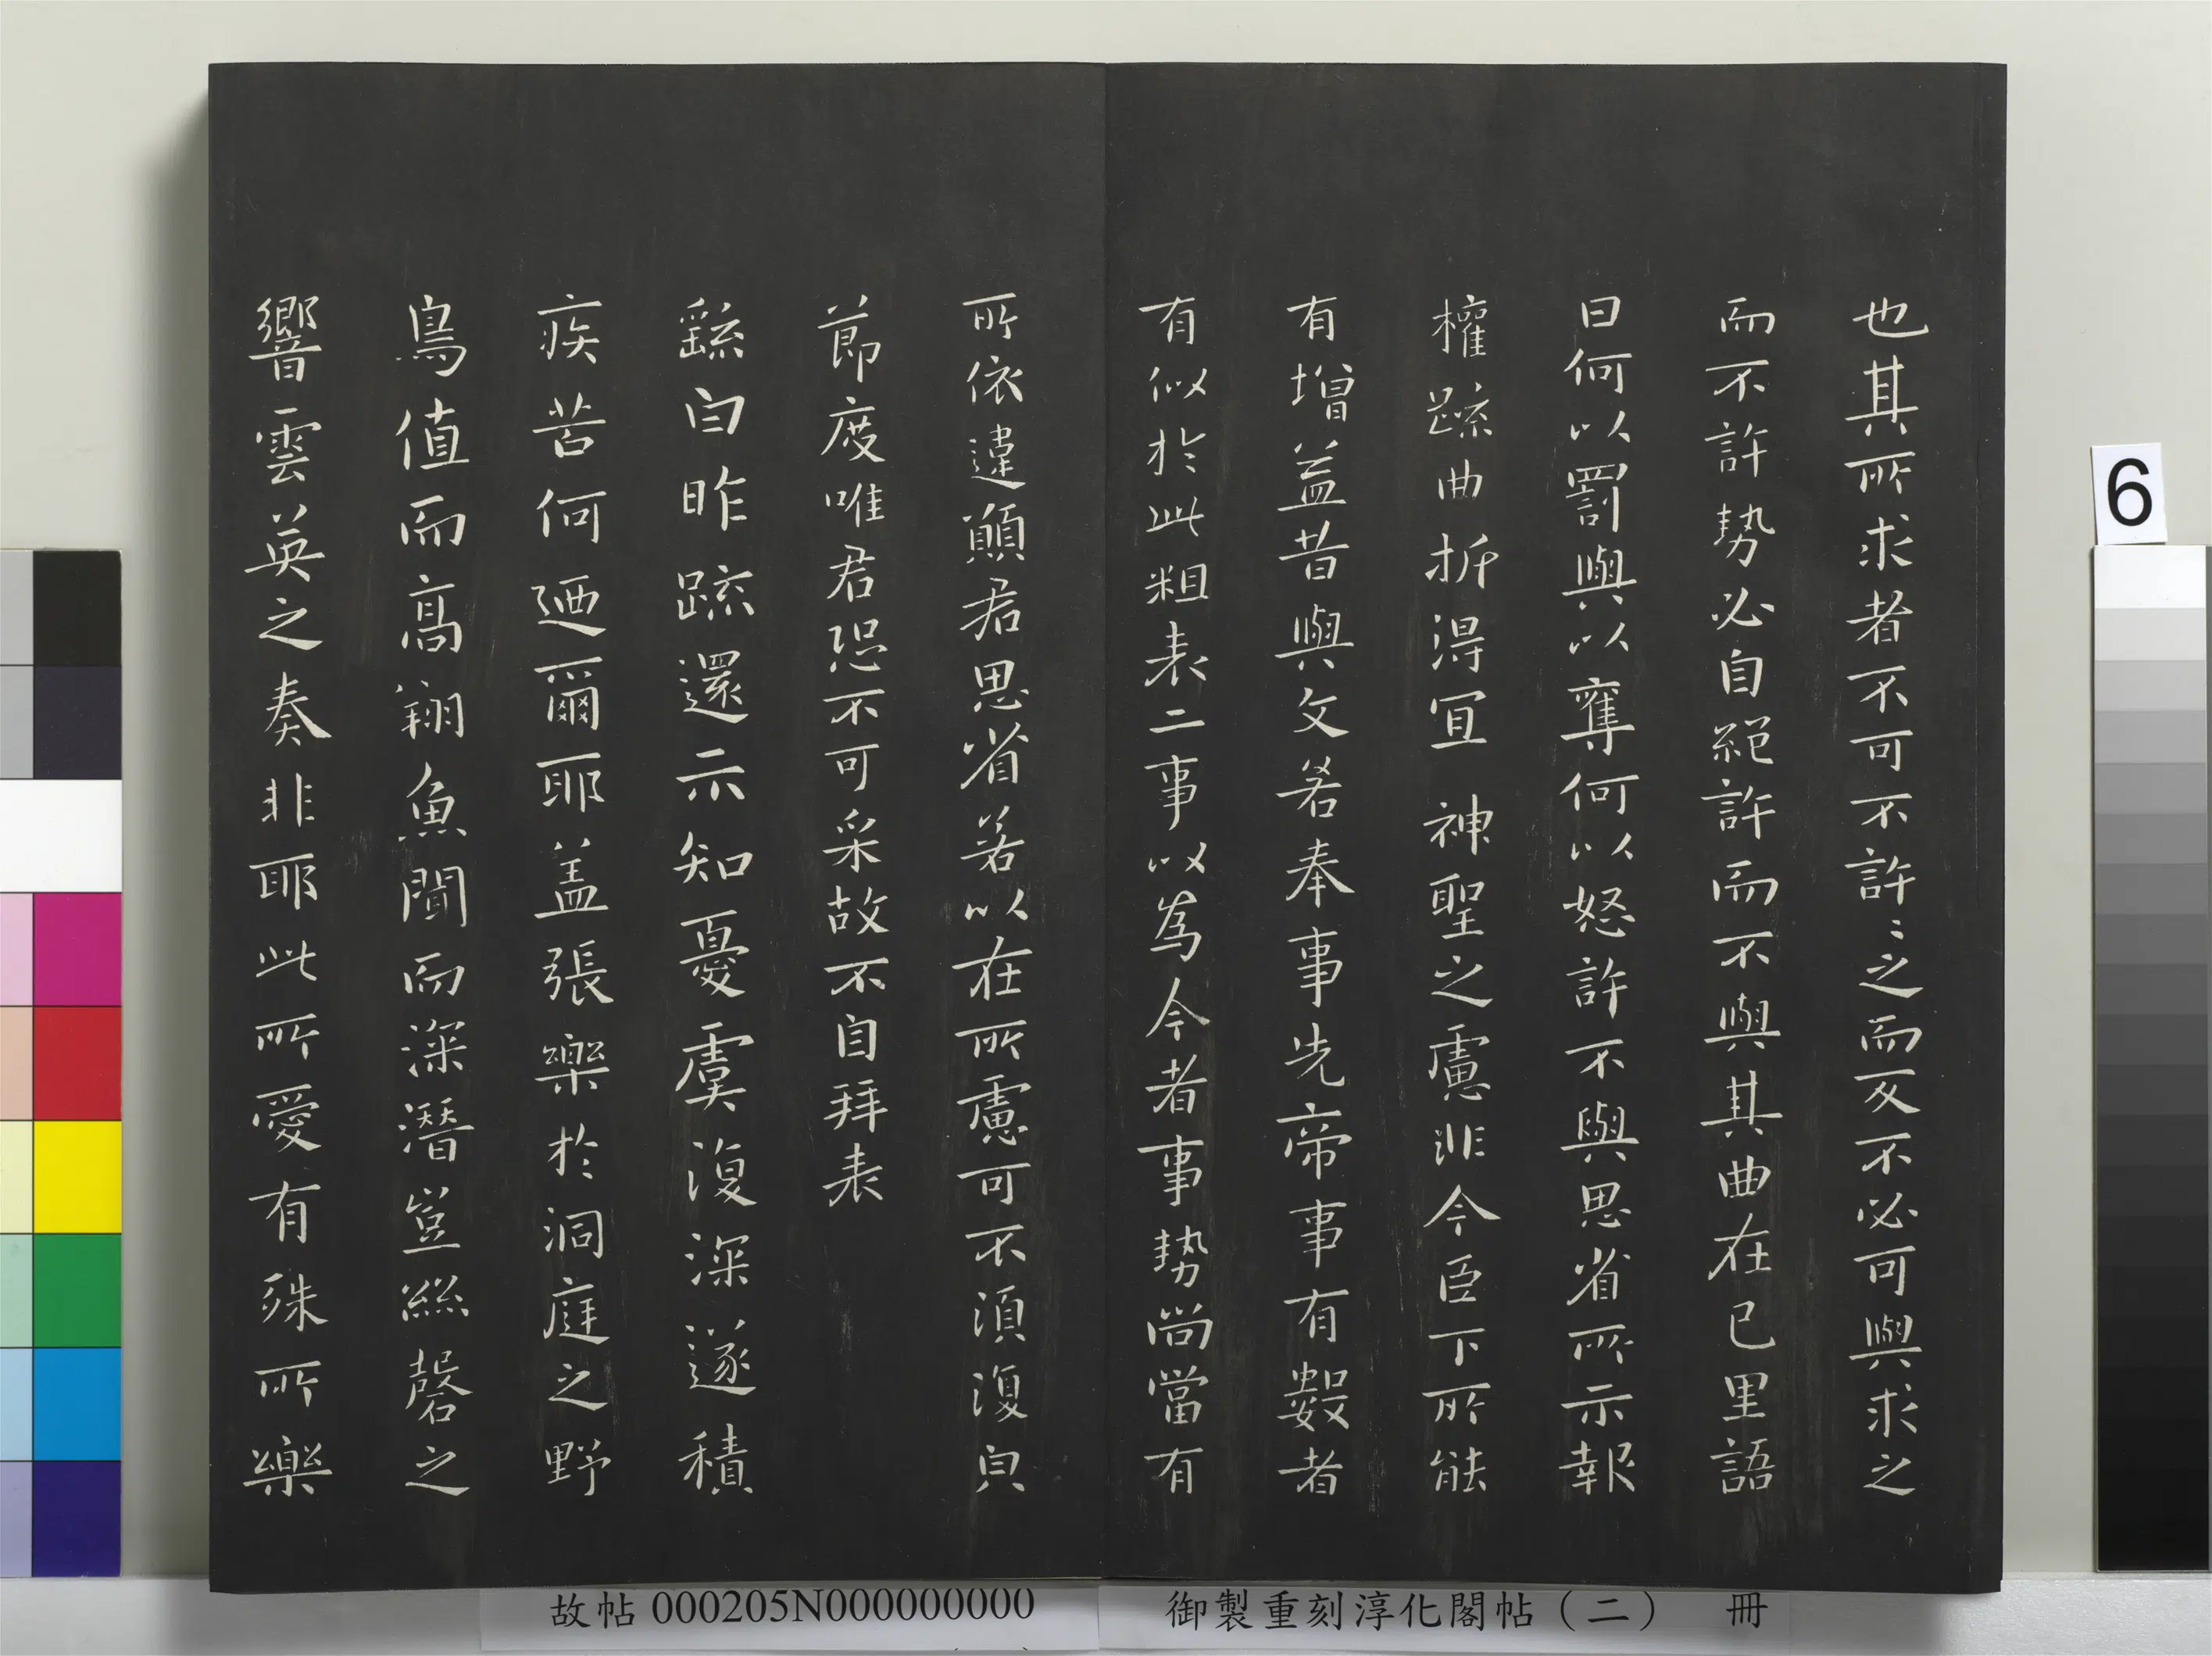 也其所求者不可不許〻之而反不必可與求之
而不許勢必自絕許而不與其曲在己里語
曰何以罰與以奪何以怒許不與思省所示報
權疏曲折得宜神聖之慮非今臣下所能
有增益昔與文若奉事先帝事有數者
有似於此粗表二事以為今者事勢尚當有
所依違願君思省若以在所慮可不須復皃
節度唯君恐不可采故不自拜表
繇白昨疏還示知憂虞復深遂積
疾苦何迺爾耶蓋張樂於洞庭之野
鳥值而高翔魚聞而深潛豈絲磬之
響雲英之奏非耶此所愛有殊所樂
6
故帖000205N000000000
御製重刻淳化閣帖（二） 冊